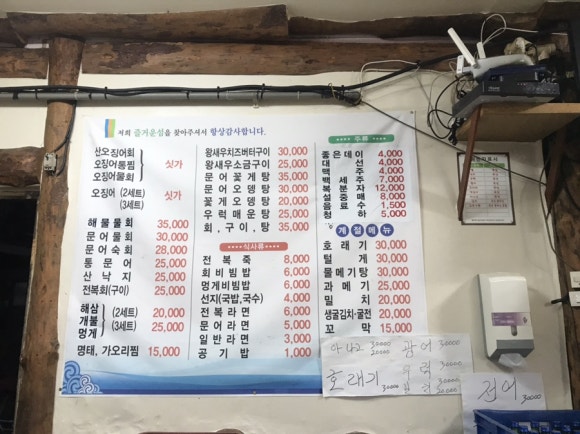 저희 즐거운섬을 찾아주셔서 항상감사합니다.
산오징어회
오징어통찜
오징어물회
싯가
오징어 (2세트)
(3세트)
싯가
해물물회 35,000
문어물회 30,000
문어숙회 28,000
통문어 25,000
산낙지 25,000
전복회(구이) 25,000
해삼
개불
멍게
(2세트) 20,000
(3세트) 25,000
명태, 가오리찜 15,000
왕새우치즈버터구이 30,000
왕새우소금구이 25,000
문어꽃게탕 35,000
문어오뎅탕 30,000
꽃게오뎅탕 20,000
우럭매운탕 25,000
회,구이,탕 35,000
식사류
전복죽 8,000
회비빔밥 6,000
멍게비빔밥 6,000
선지(국밥,국수) 4,000
전복라면 6,000
문어라면 5,000
일반라면 3,000
공기밥 1,000
주류
좋은데이 4,000
대선 4,000
맥주 4,000
백세주 7,000
복분자 12,000
설중매 8,000
음료수 1,500
청하 5,000
계절메뉴
호래기 30,000
털게 30,000
물메기탕 30,000
과메기 25,000
밀치 20,000
생굴김치·굴전 20,000
꼬막 15,000
아나고 30000
20000
광어 30000
호래기 30000
우럭 30000
20000
전어 30000